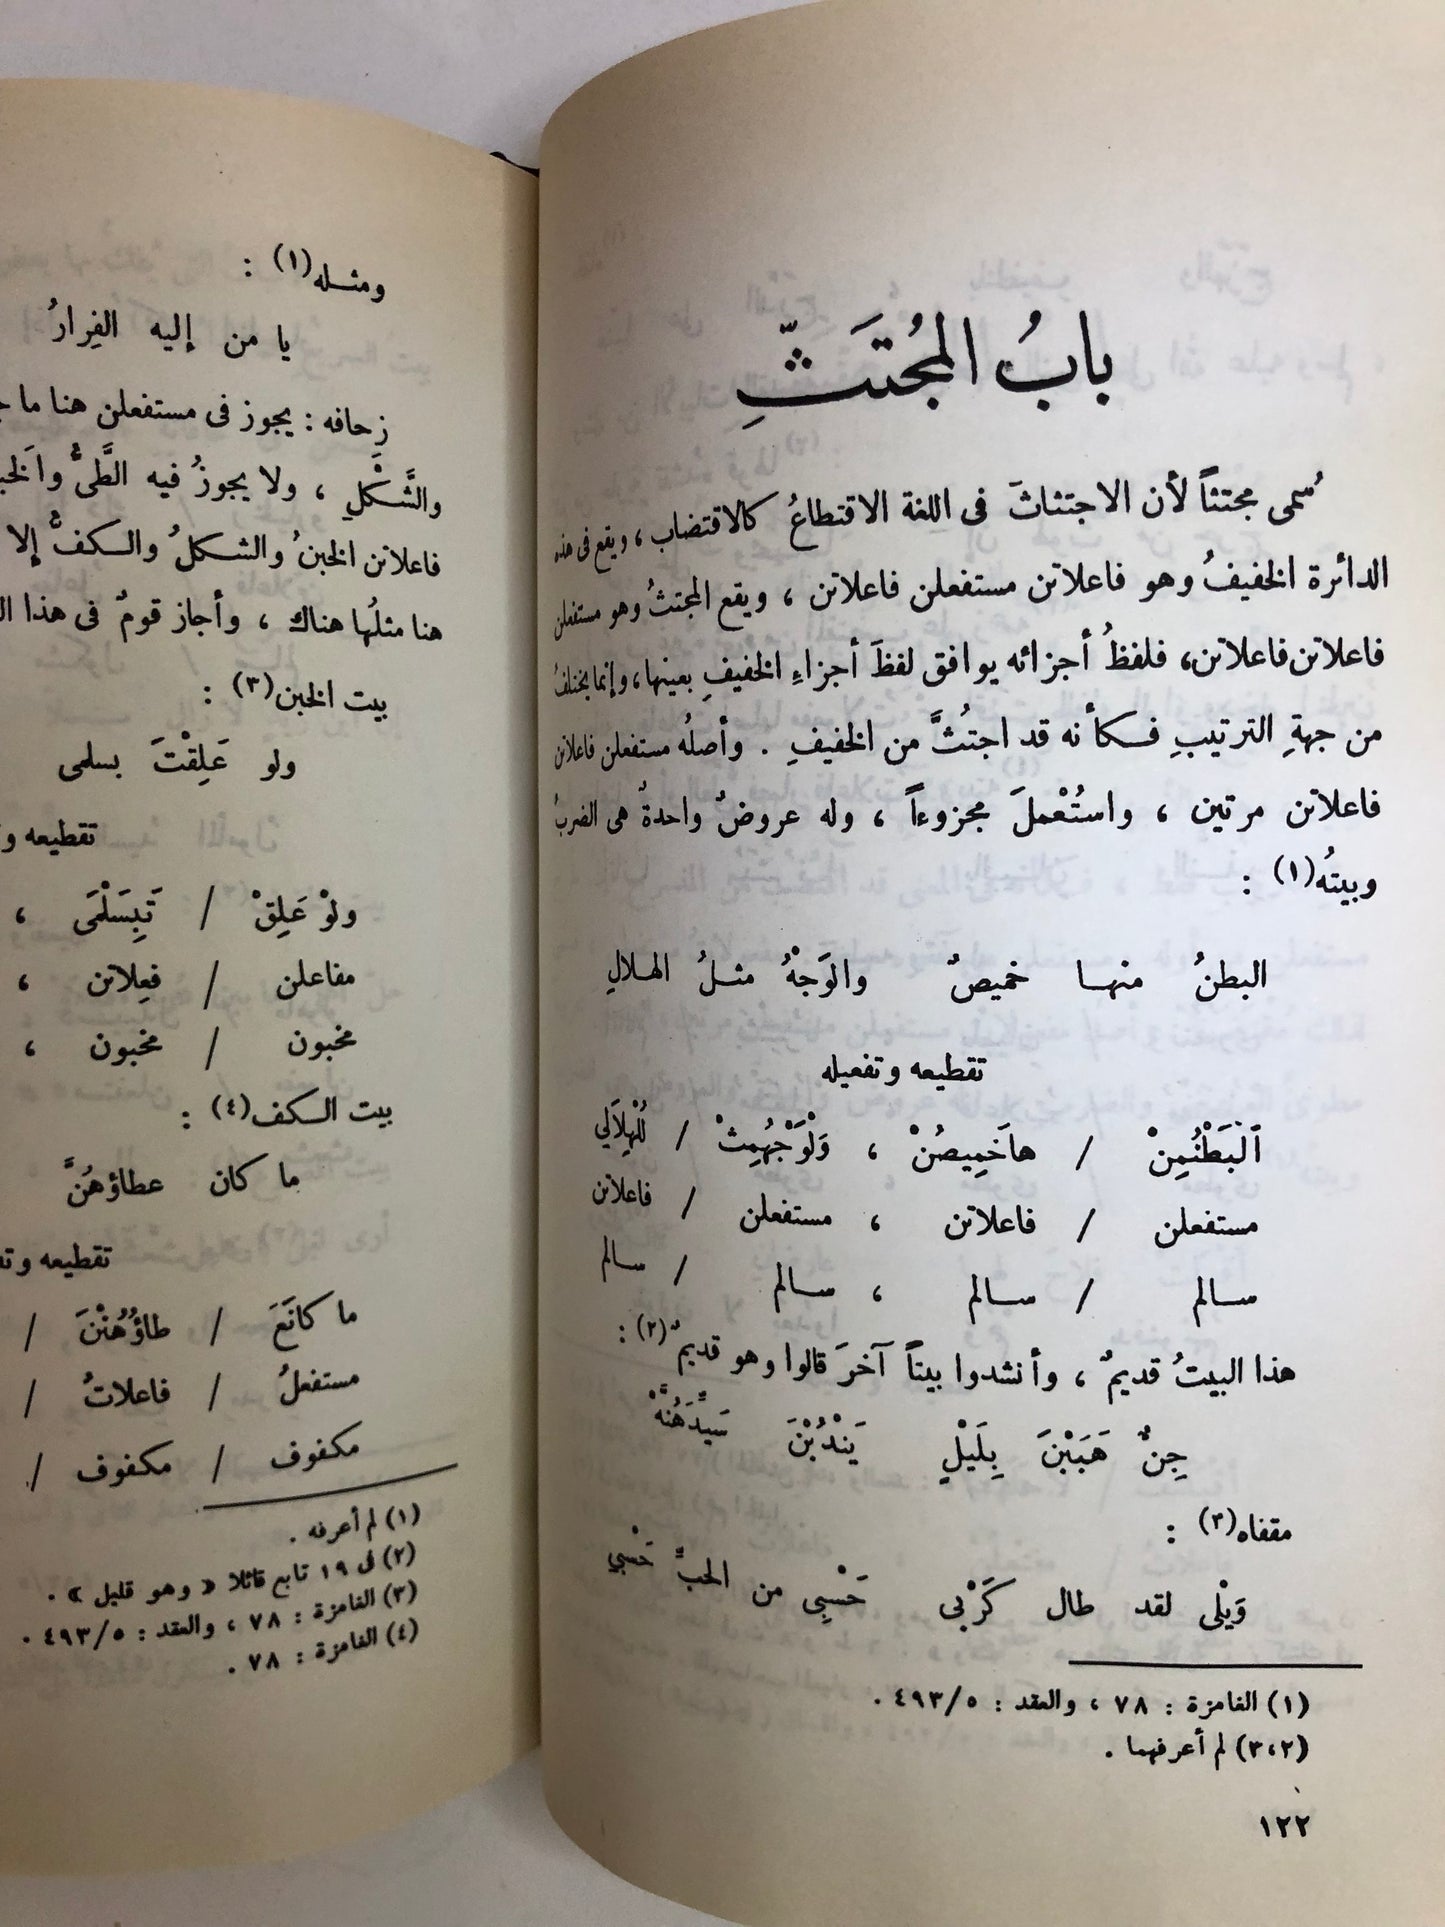 بابُ المجُتَثِّ
سُمى مجتثاً لأن الاجتثاثَ فى اللغة الاقتطاعُ كالاقتضاب ، ويقع فى هذه
الدائرة الخفيفُ وهو فاعلاتن مستفعلن فاعلاتن ، ويقع المجتثُ وهو مستفعلن
فاعلاتن فاعلاتن، فلفظُ أجزائه يوافق لفظَ أجزاءِ الخفيفِ بعينها ، وإنما يختلفُ
من جهةِ الترتيبِ فكأنه قد اجتُثَّ من الخفيفِ . وأصلُه مستفعلن فاعلاتن
فاعلاتن مرتين ، واستُعْملَ مجزوءاً ، وله عروضٌ واحدةٌ هى الضربُ
وبيتُه(١) :
البطنُ منها خميصٌ والوَجْهُ مثلُ الهلالِ
تقطيعه وتفعيله
اَلْبَطْنُمِنْ / هاخَمِيصُنْ ، وَلْوَجْهُمِثْ / لُلْهِلاَلي
مستفعلن / فاعلاتن ، مستفعلن / فاعلاتن
سالم / سالم ، سالم / سالم
هذا البيتُ قديمٌ ، وأنشدوا بيتاً آخرَ قالوا وهو قديمٌ(٢) :
جِنٌّ هَبَبْنَ بِلَيْلٍ يَنْدُبْنَ سَيِّدَهُنَّهْ
مقفاه(٣) :
وَيْلى لقد طال كَرْبى حَسْبِى من الحبِّ حَسْبي
(١) الغامزة : ٧٨ ، والعقد : ٤٩٣/٥ .
(٣،٢) لم أعرفهما .
١٢٢
ومثله(١) :
يا من إليه الفِرارُ
زحافه : يجوز فى مستفعلن هنا ما
والشَّكْلِ ، ولا يجوزُ فيه الطَّىُّ والخبـ
فاعلاتن الخبنُ والشكلُ والكفُّ إلا
هنا مثلُها هناك ، وأجاز قومٌ فى هذا الـ
بيت الخبن(٣) :
ولو عَلِقْتَ بسلمى
تقطيعه وتـ
ولوْ عَلِقْ / تَبِسَلْمَى ،
مفاعلن / فعِلاتن ،
مخبون / مخبون ،
بيت الكف(٤) :
ما كان عطاؤهُنَّ
تقطيعه وتفـ
ما كانَعَ / طاؤُهُنْنَ /
مستفعلُ / فاعلاتُ /
مكفوف / مكفوف /
(١) لم أعرفه .
(٢) فى ١٩ تابع قائلا « وهو قليل » .
(٣) الغامزة : ٧٨ ، والعقد : ٤٩٣/٥ .
(٤) الغامزة : ٧٨ .